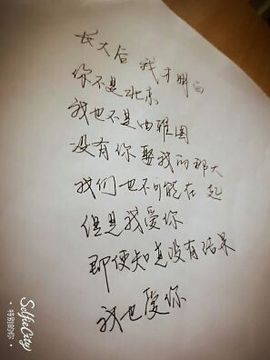 长大后 我才明白
你不是北京
我也不是由雅图
没有你娶我的那天
我们也不可能在一起
但是我爱你
即便知道没有结果
我也爱你
SelfieCity